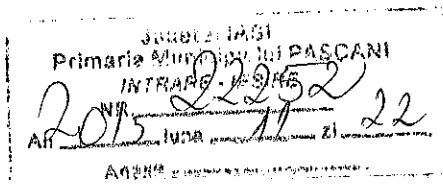 Judeţul IAŞI
Primăria Municipiului PAŞCANI
INTRARE - IEŞIRE
NR. 22252
An 2015 luna 11 zi 22
Anexe